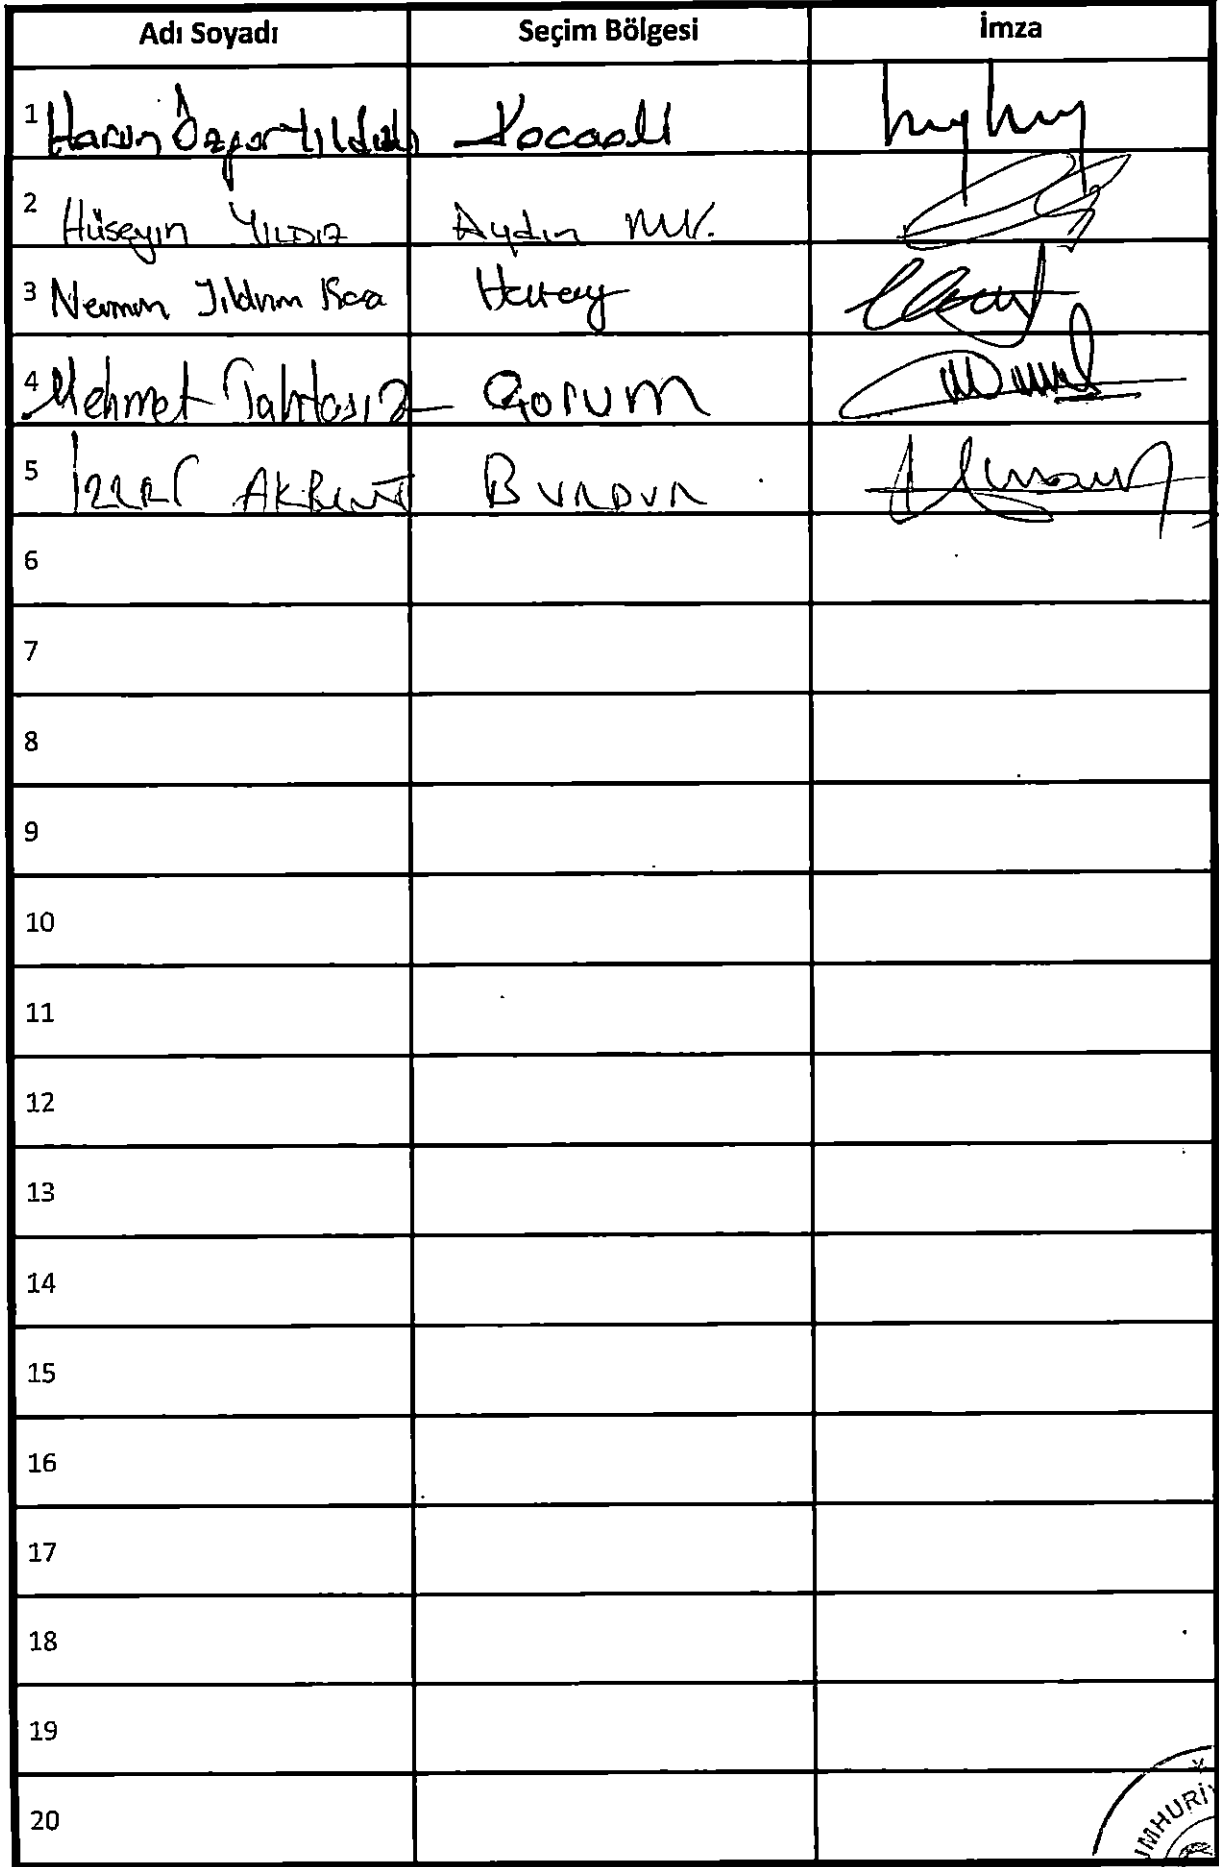 Adı Soyadı Seçim Bölgesi İmza
1 Harun Özgür Yıldızlı Kocaeli
2 Hüseyin YILDIZ Aydın MV.
3 Nermin Yıldırım Kara Hatay
4 Mehmet Tahtasız Çorum
5 İzzet AKBULUT BURDUR
6
7
8
9
10
11
12
13
14
15
16
17
18
19
20